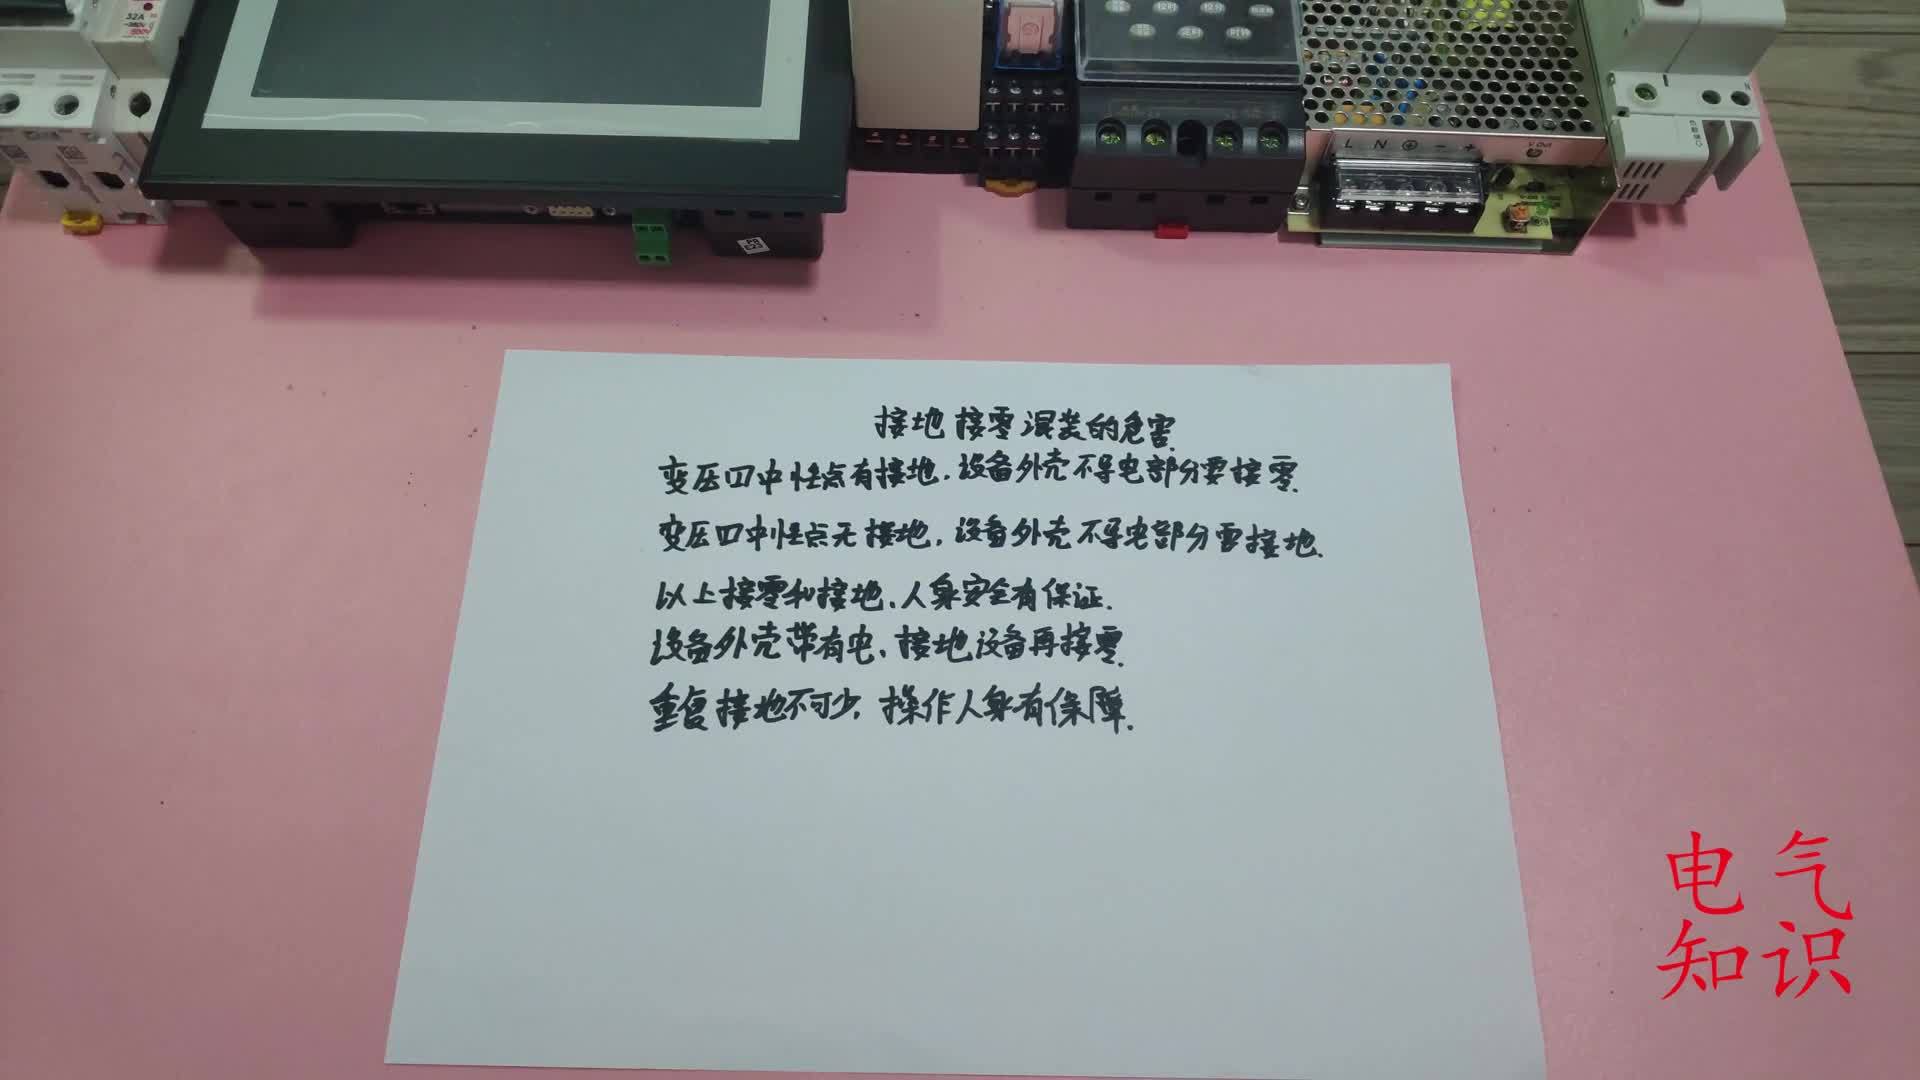 32A
L N ⏚ − +
接地接零混装的危害.
变压口中性点有接地.设备外壳不导电部分要接零.
变压口中性点无接地,设备外壳不导电部分需接地.
以上接零和接地.人身安全有保证.
设备外壳带有电、接地设备再接零.
重复接地不可少,操作人身有保障.
电气
知识